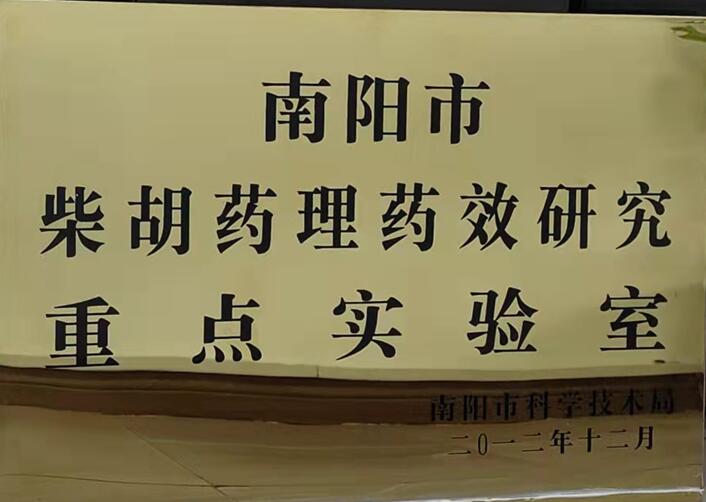 南阳市
柴胡药理药效研究
重点实验室
南阳市科学技术局
二〇一二年十二月